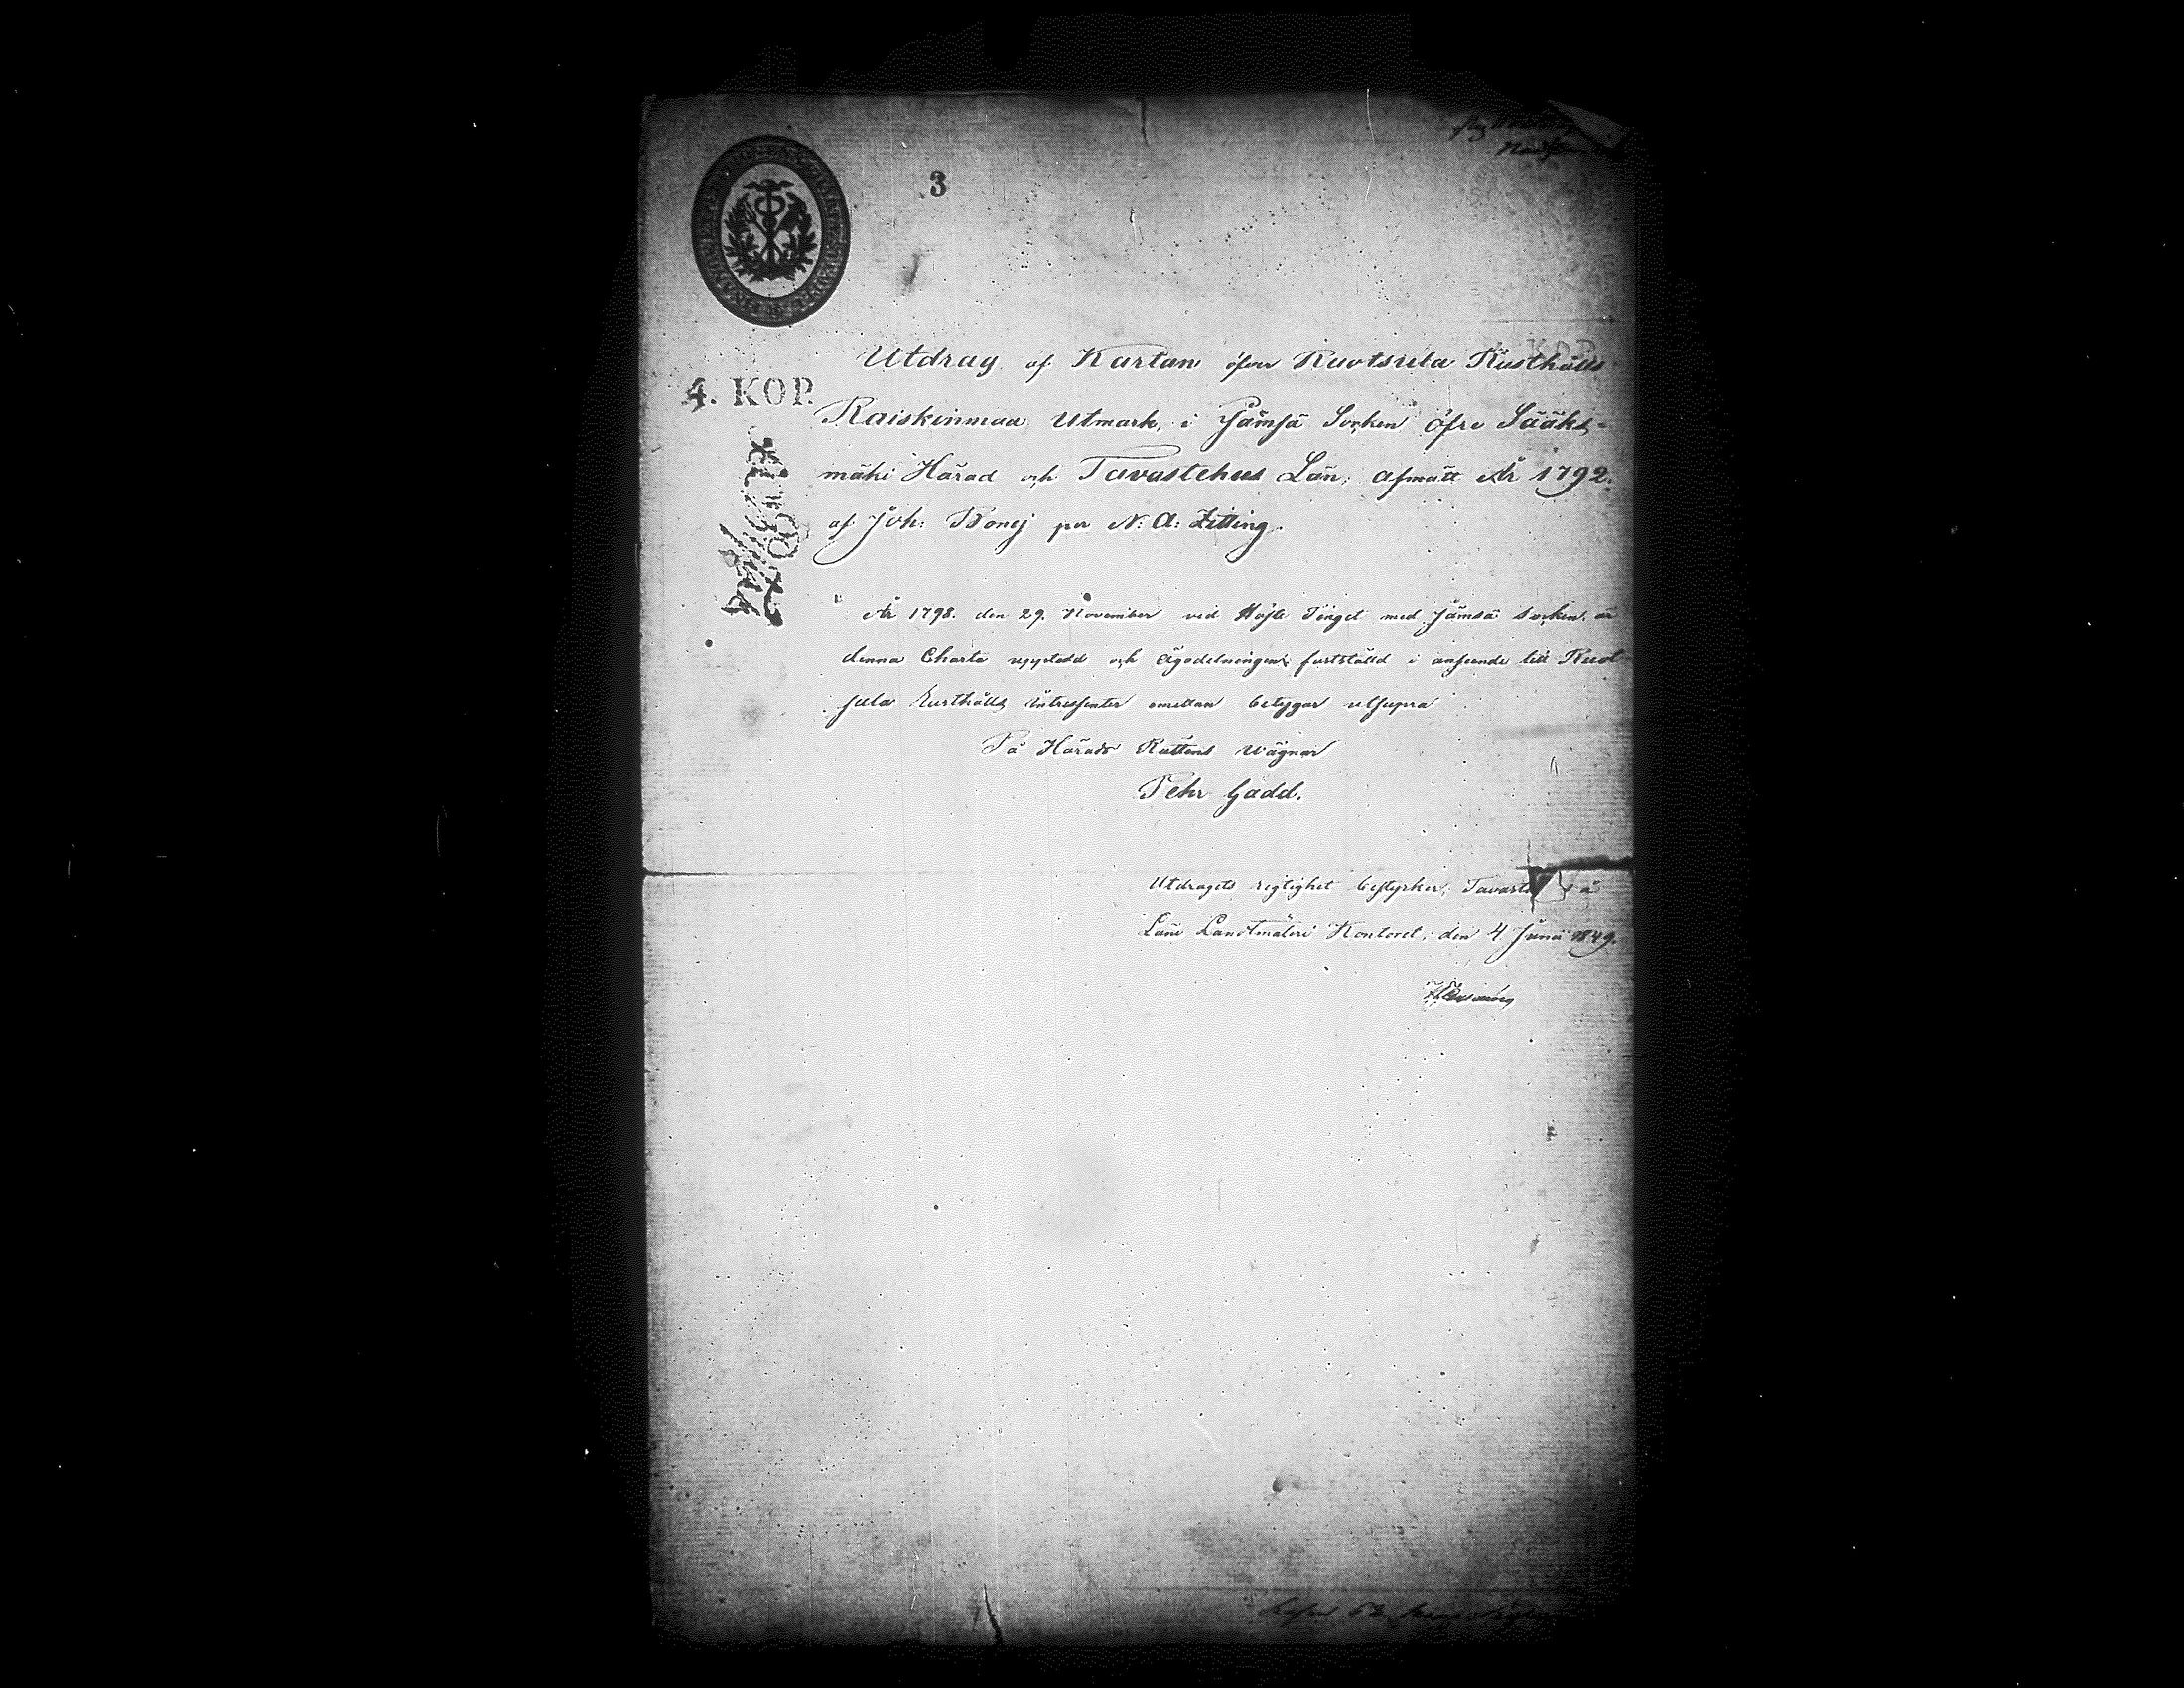 3
4. KOP.
Utdrag af Kartan öfver Ruotsula Rusthålls
Raiskinmaa Utmark, i Jämsä Socken öfre Sääks-
mäki Härad och Tavastehus Län, afmätt År 1792.
af Joh: Bonej per N: A: Zitting.
År 1798. den 29. November ved Höste Tinget med Jämsä socken är
denna Charta uppvisad och Ägodelningen fastställd i anseende till Ruot
sula Rusthålls intressenter emellan betygar utsupra
På Härads Rättens Wägnar
Pehr Gadd.
Utdragets rigtighet bestyrker, Tavaste
Läns Landtmäteri Kontoret, den 4 Juni 1849.